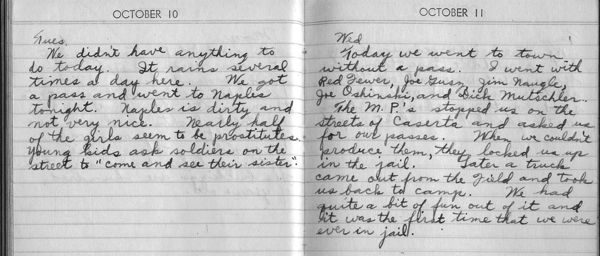 OCTOBER 10
Tues.
We didn't have anything to
do today. It rains several
times a day here. We got
a pass and went to Naples
tonight. Naples is dirty and
not very nice. Nearly half
of the girls seem to be prostitutes.
Young kids ask soldiers on the
street to "come and see their sister".
OCTOBER 11
Wed
Today we went to town
without a pass. I went with
Red Fewer, Joe Guzy, Jim Naugle,
Joe Oshinski, and Dick Mutschler.
The M.P.'s stopped us on the
streets of Caserta and asked us
for our passes. When we couldn't
produce them, they locked us up
in the jail. Later a truck
came out from the field and took
us back to camp. We had
quite a bit of fun out of it and
it was the first time that we were
ever in jail.